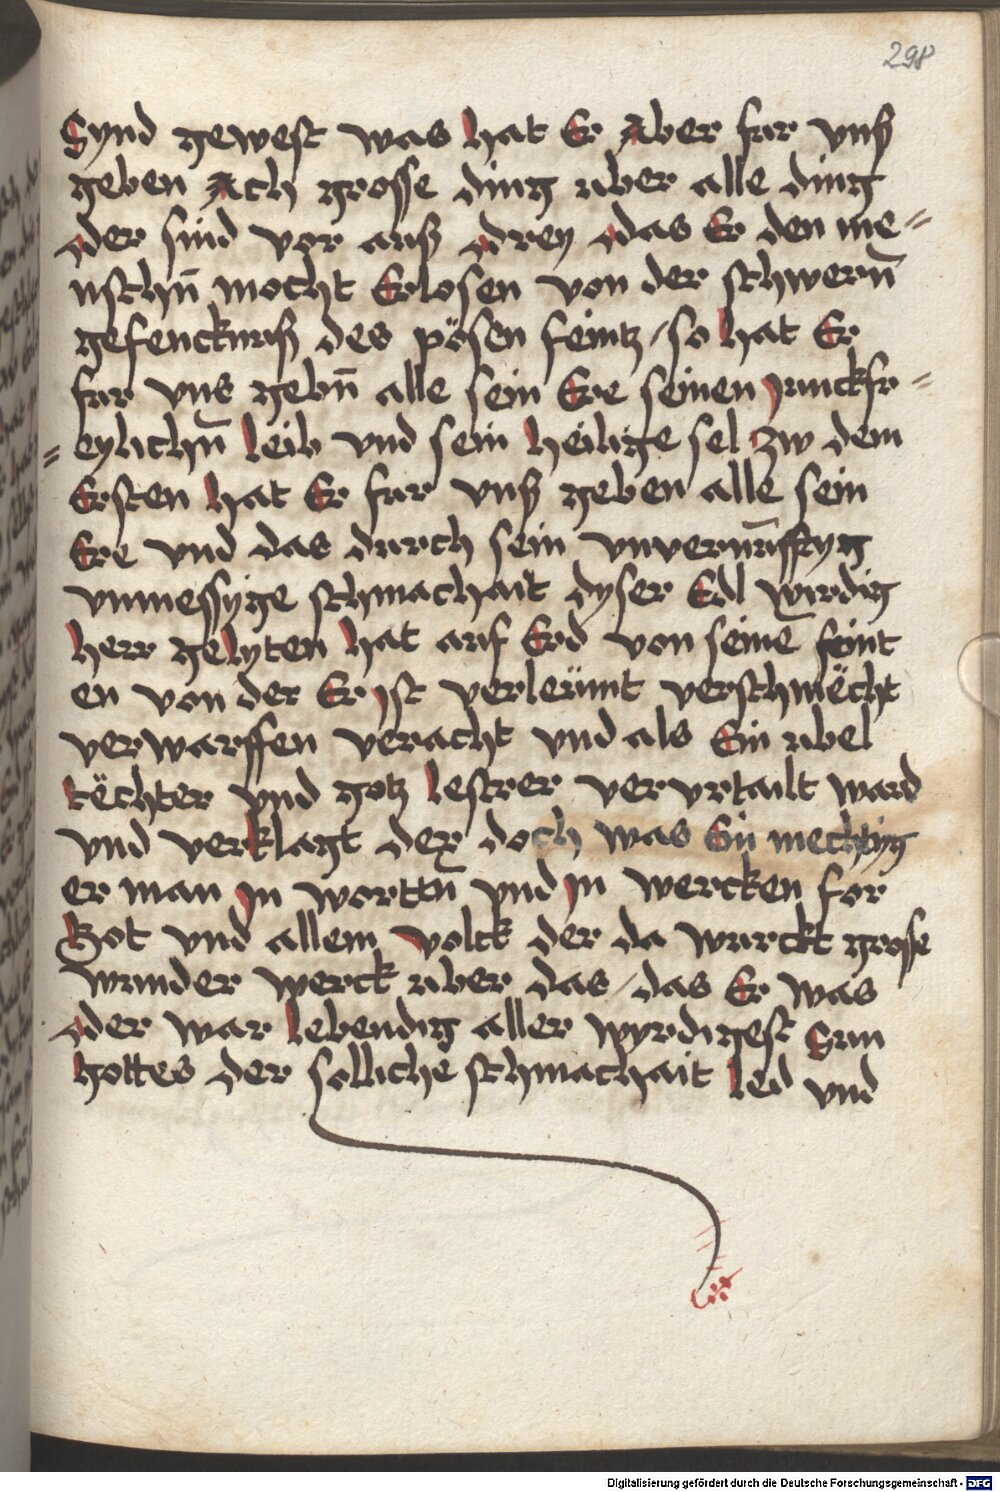 298
Synd gewest was hat Er Aber fur vnß
geben Ach grosse ding uber alle ding
der sind vor auß drey das Er den me=
nschn̄ mocht Erlosen von der schwern̄
gefencknuß des pösen feintz / so hat Er
fur vns gebn̄ alle sein Ere seinen Junckfr=
=eylichn̄ leib vnd sein heilige sel Zw dem
Ersten hat Er fur vnß geben alle sein
Ere vnd das durch sein vnvernūfftyg
vnmessyge schmachait dyser Edl wirdig
herr gelyten hat auf Erd von seinē feint
en von der Er Jst verleümt verschmëcht
verwarffen veracht vnd als Ein ubel
tëchter vnd gotz lestrer vervrtailt ward
vnd verklagt der doch was Ein mechtyg
er man Jn wortten̄ vnd Jn wercken for
Got vnd allem volck der da wurckt grosse
wunder werck uber das / das Er was
der war lebendig aller wyrdigest Sun
gottes der solliche schmachait led vnd
Digitalisierung gefördert durch die Deutsche Forschungsgemeinschaft - DFG